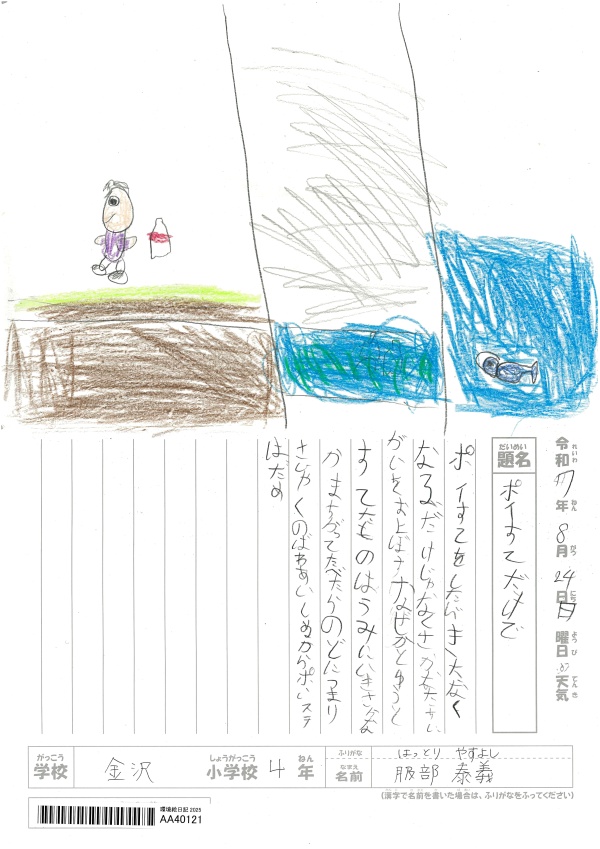 令和7年8月24日日曜日天気
れいわ ねん がつ にち ようび てんき
だいめい
題名 ポイすてだけで
ポイすてをしたらき大なく
なるだけじゃなくさかなたちに
がいをおよばす なぜかとゆうと
すてたものはうみにいきさかな
がまちがってたべたらのどにつまり
さいやくのばあいしぬからポイステ
はだめ
がっこう しょうがっこう ねん ふりがな はっとり やすよし
学校 金沢 小学校 4年 なまえ 名前 服部 泰義
(漢字で名前を書いた場合は、ふりがなをふってください)
環境絵日記 2025
AA40121